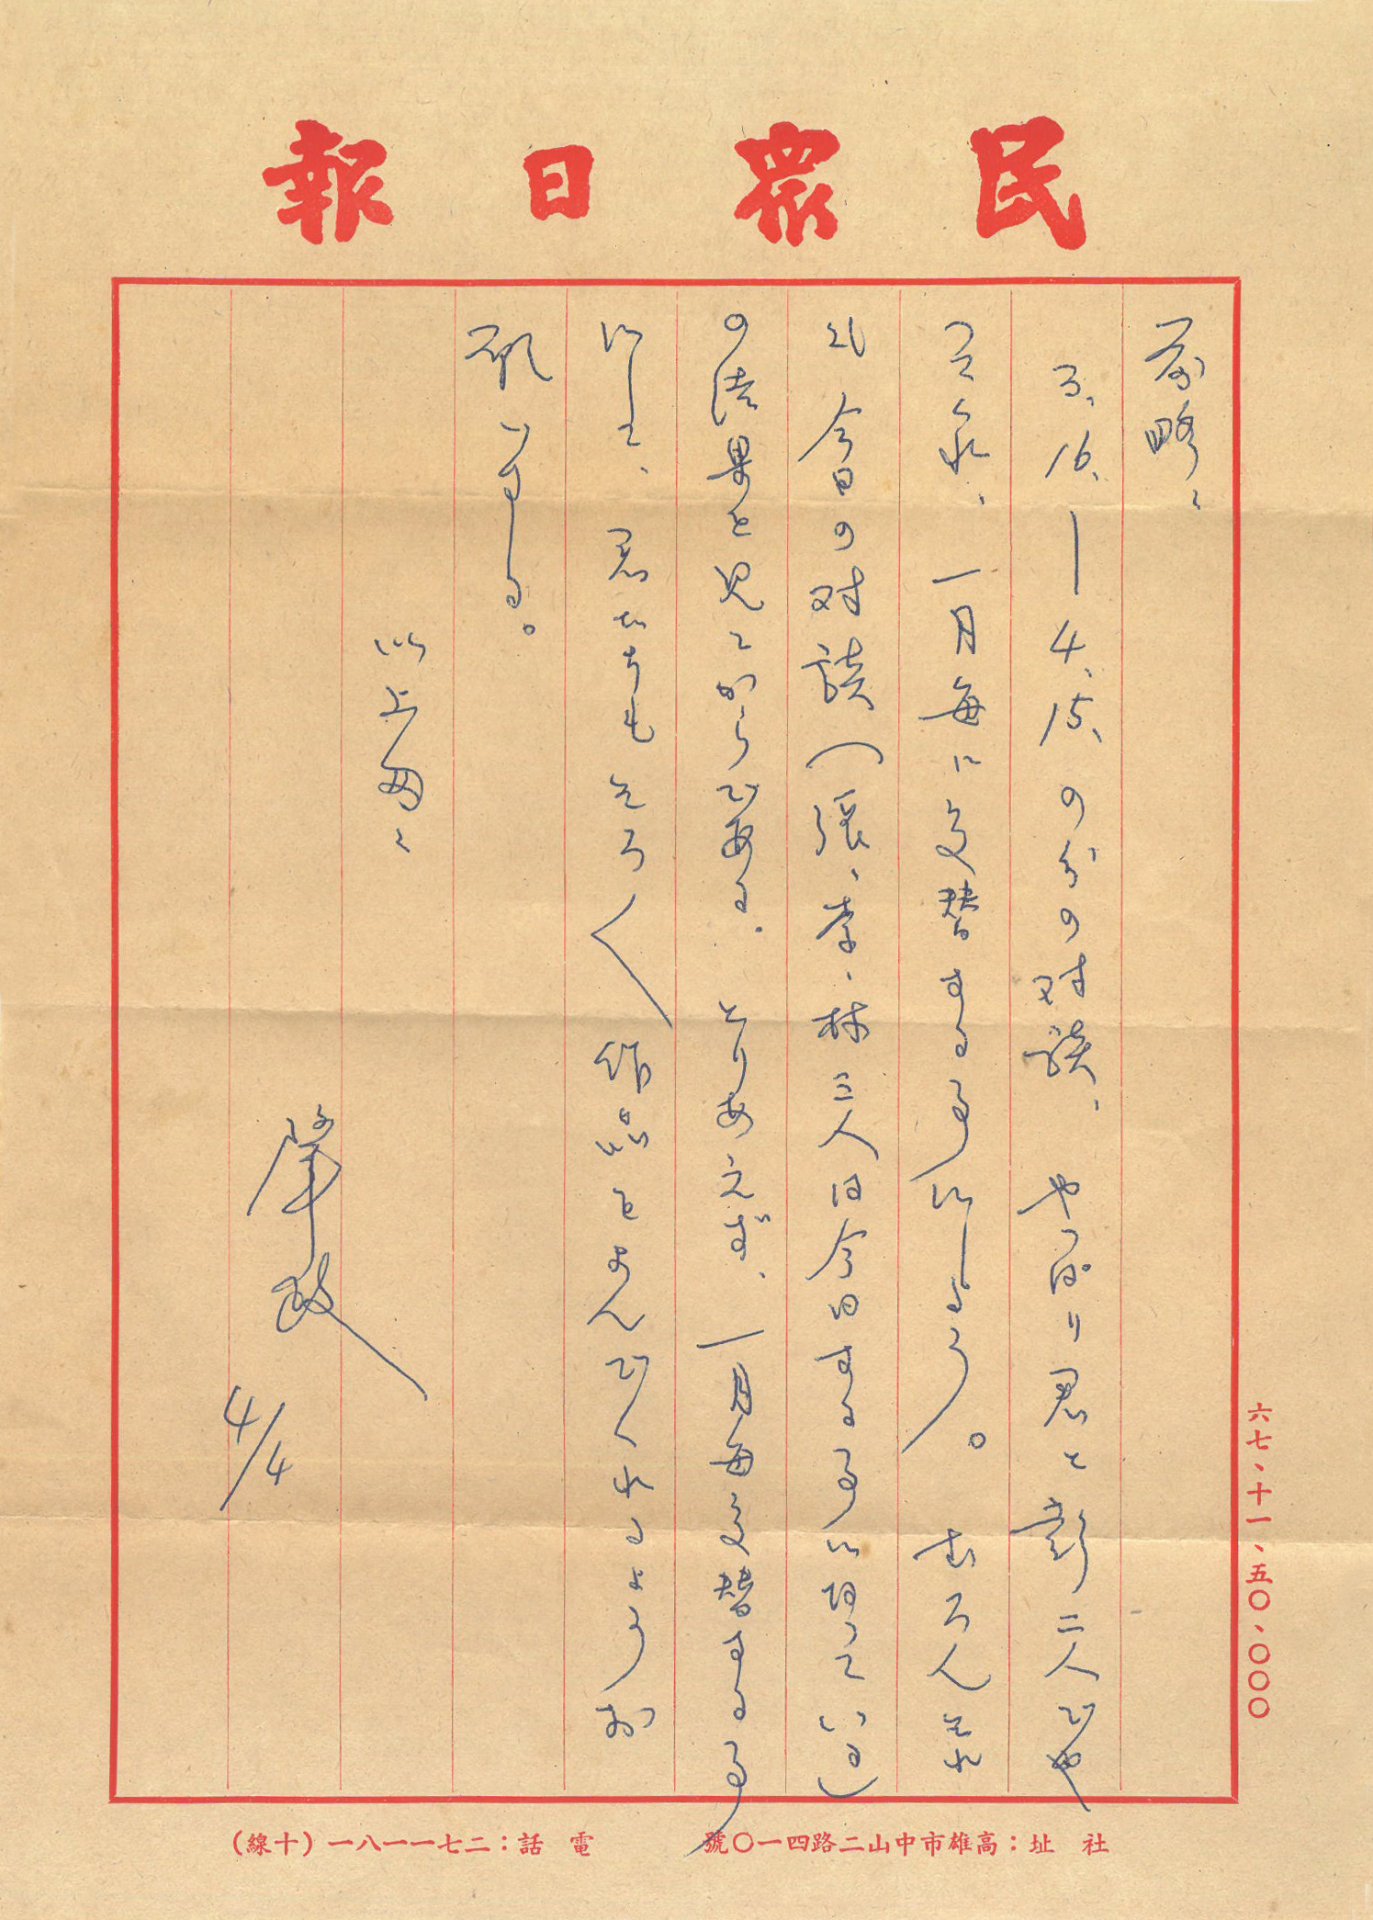 民眾日報
前略、
3、16、—4、15、の分の対談、やっぱり君と彭二人でや
ってくれ、一月毎に交替することにしよう。もちろんそれ
は今日の対談（張、李、林三人は今日することに相っている）
の結果を見てからである。とりあえず、一月毎交替すること
にして、君たちもそろ〱作品をよんでくれるようお
願いする。
以上匆々
肇政
4/4
六七、十一、五〇、〇〇〇
社址：高雄市中山二路四一〇號 電話：二七一一八一（十線）